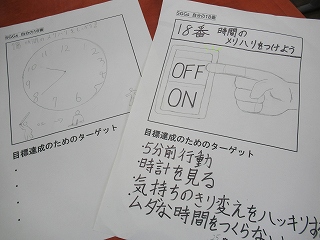 SDGs 自分の18番
目標達成のためのターゲット
SDGs 自分の18番
18番 時間の
メリハリをつけよう
OFF
ON
目標達成のためのターゲット
・5分前行動
・時計を見る
・気持ちのきり変えをハッキリ
ムダな時間をつくらない